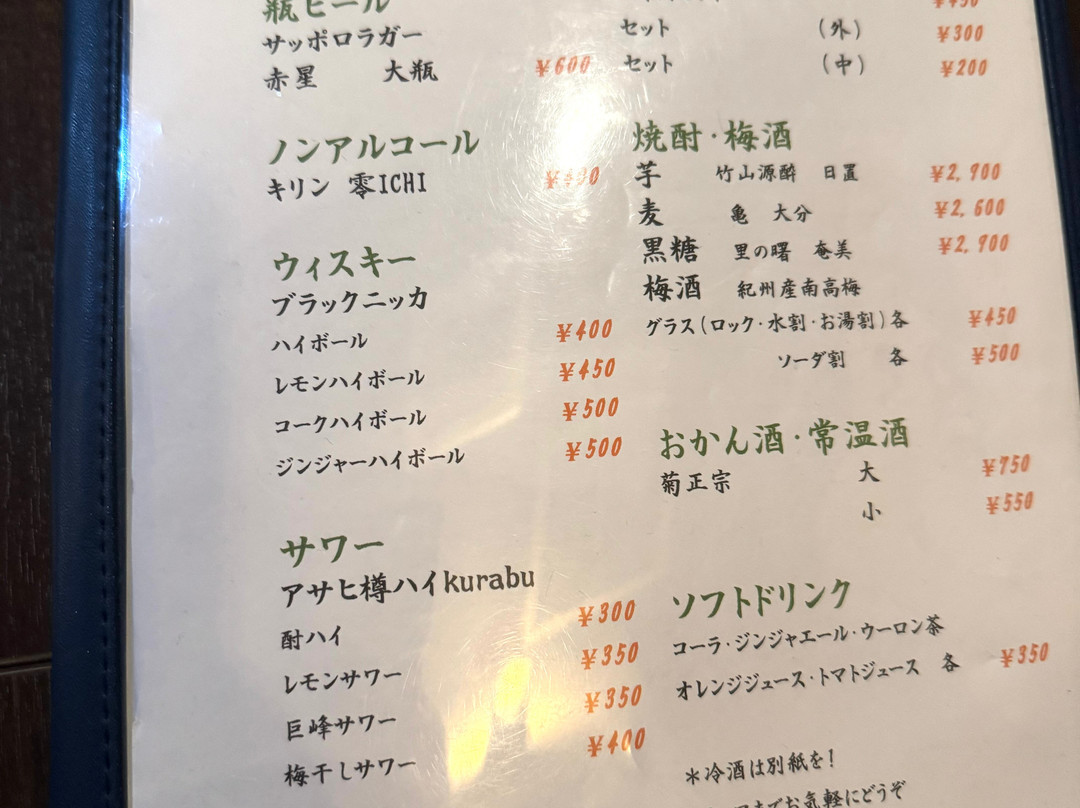 瓶ビール
サッポロラガー
赤星 大瓶 ¥600
ノンアルコール
キリン 零ICHI
ウィスキー
ブラックニッカ
ハイボール ¥400
レモンハイボール ¥450
コークハイボール ¥500
ジンジャーハイボール ¥500
サワー
アサヒ樽ハイkurabu
酎ハイ ¥300
レモンサワー ¥350
巨峰サワー ¥350
梅干しサワー ¥400
セット (外) ¥300
セット (中) ¥200
焼酎・梅酒
芋 竹山源酔 日置 ¥2,900
麦 亀 大分 ¥2,600
黒糖 里の曙 奄美 ¥2,900
梅酒 紀州産南高梅
グラス(ロック・水割・お湯割)各 ¥450
ソーダ割 各 ¥500
おかん酒・常温酒
菊正宗 大 ¥750
小 ¥550
ソフトドリンク
コーラ・ジンジャエール・ウーロン茶
オレンジジュース・トマトジュース 各 ¥350
*冷酒は別紙を!
までお気軽にどうぞ